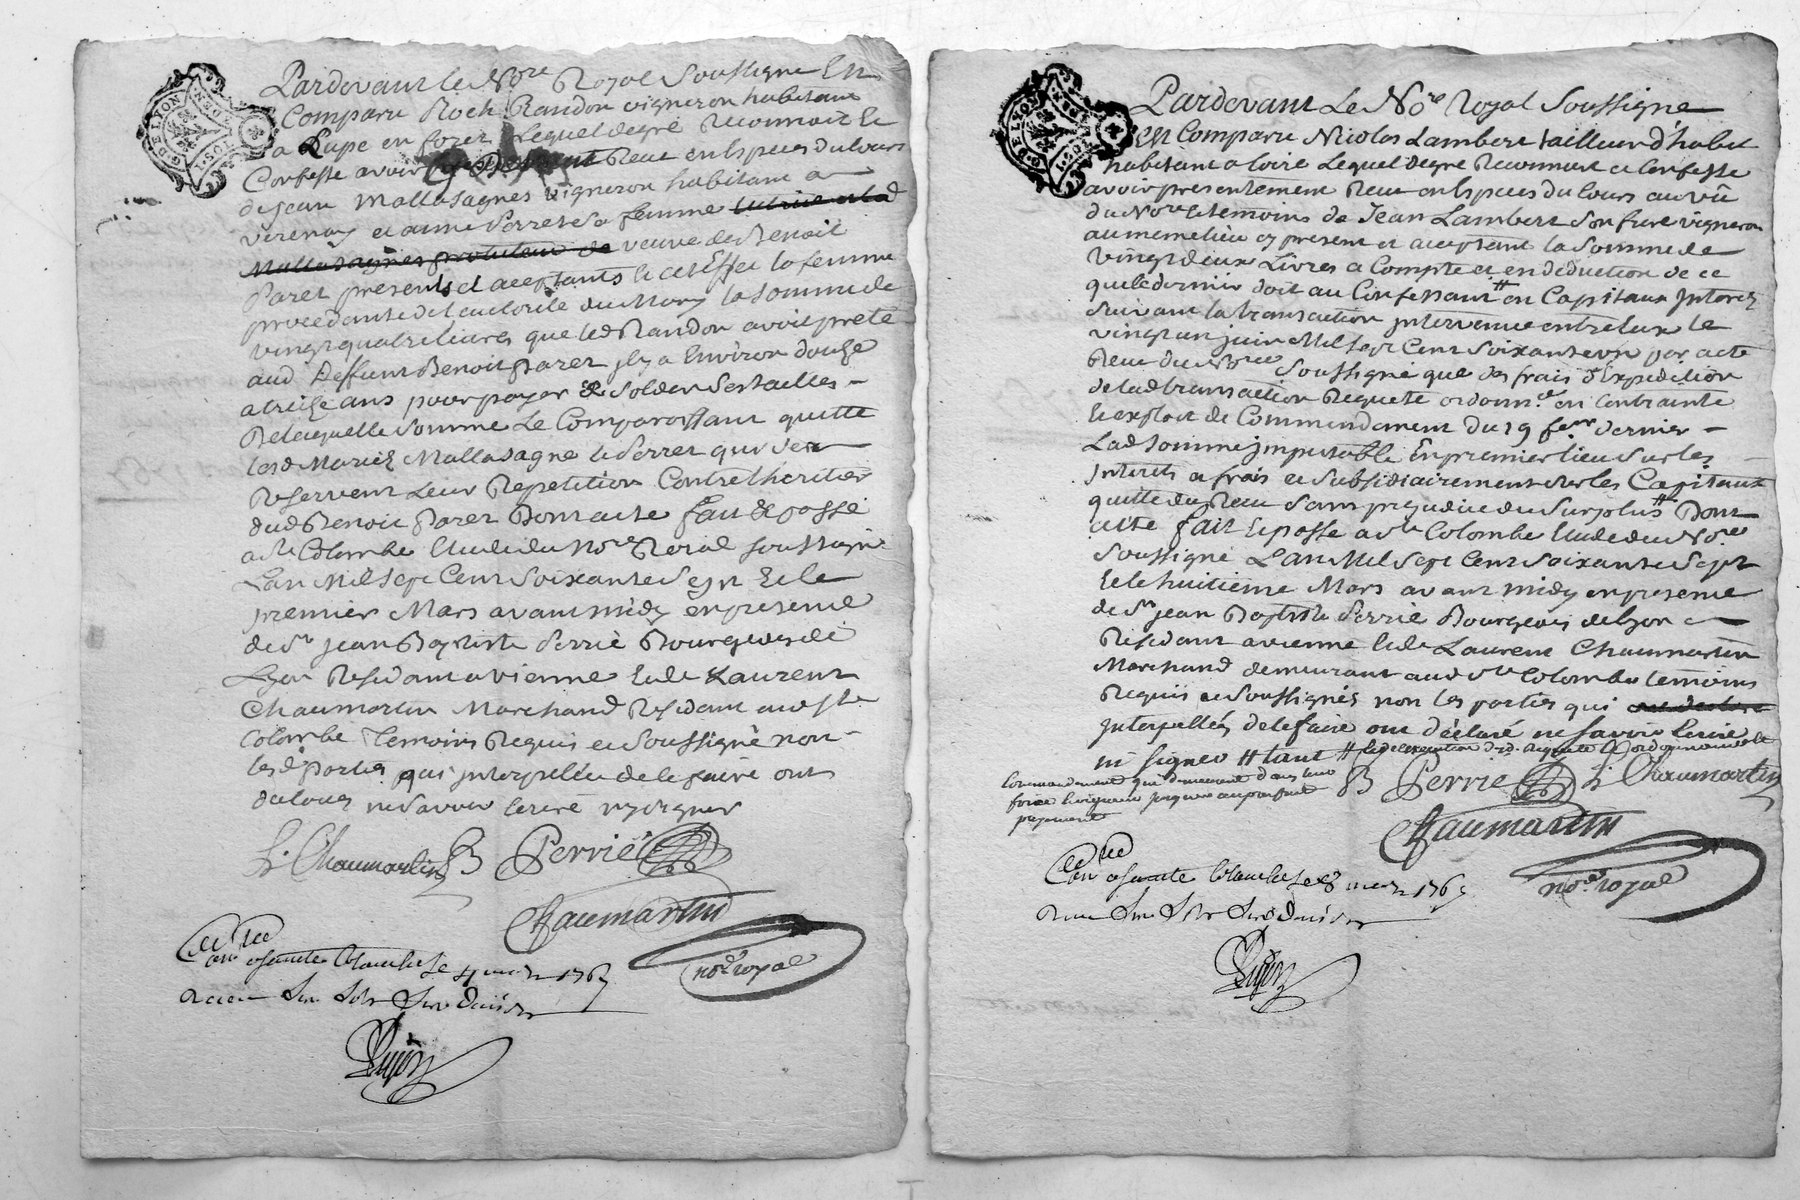 G. DE LYON
Pardevant le No.re Royal Soussigné En
Comparu Roch Randon vigneron habitant
a Lupe en forez Lequel degré Reconnoit Et
Confesse avoir Reçu en Especes du Cours
de jean Mallasagnes vigneron habitant a
verenay et anne Perret Sa femme
Mallasagnes veuve de Benoit
Paret presents et aceptants le et Effet la femme
procedante de l'autorité du Mary la Somme de
vingt quatre livres que led Randon avoit preté
aud Deffunt Benoit Paret jl y a Environ douze
a treize ans pour payer & Solder Ses tailles
De laquelle Somme Le Comparoissant quitte
lesd Mariez Mallasagne et Perret qui Se
Reservent Leur Repetition Contre l'heritier
dud Benoit Paret Dont acte fait & passé
a Ste Colombe Etude du No.re Roial soussigné
L'an Mil Sept Cent Soixante Sept Et le
premier Mars avant midy en presence
de Sr jean Baptiste Perrié Bourgeois de
Lyon Residant a vienne Et de Laurent
Chaumartin Marchand Residant aud Ste
Colombe temoins Requis et Soussigné non
lesd Parties qui jnterpellés de le faire ont
ne Savoir Ecrire ny Signer
L. Chaumartin B Perrié
Chaumartin
no.re royal
a Sainte Colombe Le 4 mars 1767
Recu Six Sols Six Deniers
G. DE LYON
Pardevant Le No.re Royal Soussigné
En Comparu Nicolas Lambert tailleur d'habit
habitant a loire Lequel degré Reconnoit et Confesse
avoir presentement Reçu en Especes du Cours au vû
du No.re & temoins de Jean Lambert Son frere vigneron
au meme lieu cy present et aceptant la Somme de
vingt deux Livres a Compte et en deduction de ce
que le dernier doit au Confessant # en Capitaux Interets
Suivant la transaction jntervenue entre Eux le
vingt un juin Mil Sept Cent Soixante par acte
Reçu du No.re Soussigné que des frais d'Expedition
de lad transaction Requete ordonn.ce en Contrainte
Et exploit de Commendement du 19 fevr dernier
Lad Somme jmputable En premier lieu Sur les
Interets & frais et Subsidiairement Sur les Capitaux
quitte du Reçu Sans prejudice du Surplus # Dont
acte fait Et passé a Ste Colombe Etude du No.re
Soussigné L'an Mil Sept Cent Soixante Sept
Et le huitieme Mars avant midy en presence
de Sr jean Baptiste Perrié Bourgeois de Lyon
Residant a vienne Et de Laurent Chaumartin
Marchand demeurant aud Ste Colombe temoins
Requis et Soussignés non les parties qui
Interpellées de le faire ont déclaré ne Savoir Ecrire
ni Signer # tant # Requete & ordonnance
Commandement qui demeurent dans leur
force & vigueur jusques au parfait
payement
B Perrié L. Chaumartin
Chaumartin
no.re royal
a Sainte Colombe Le 8 mars 1767
Recu Six Sols Six Deniers